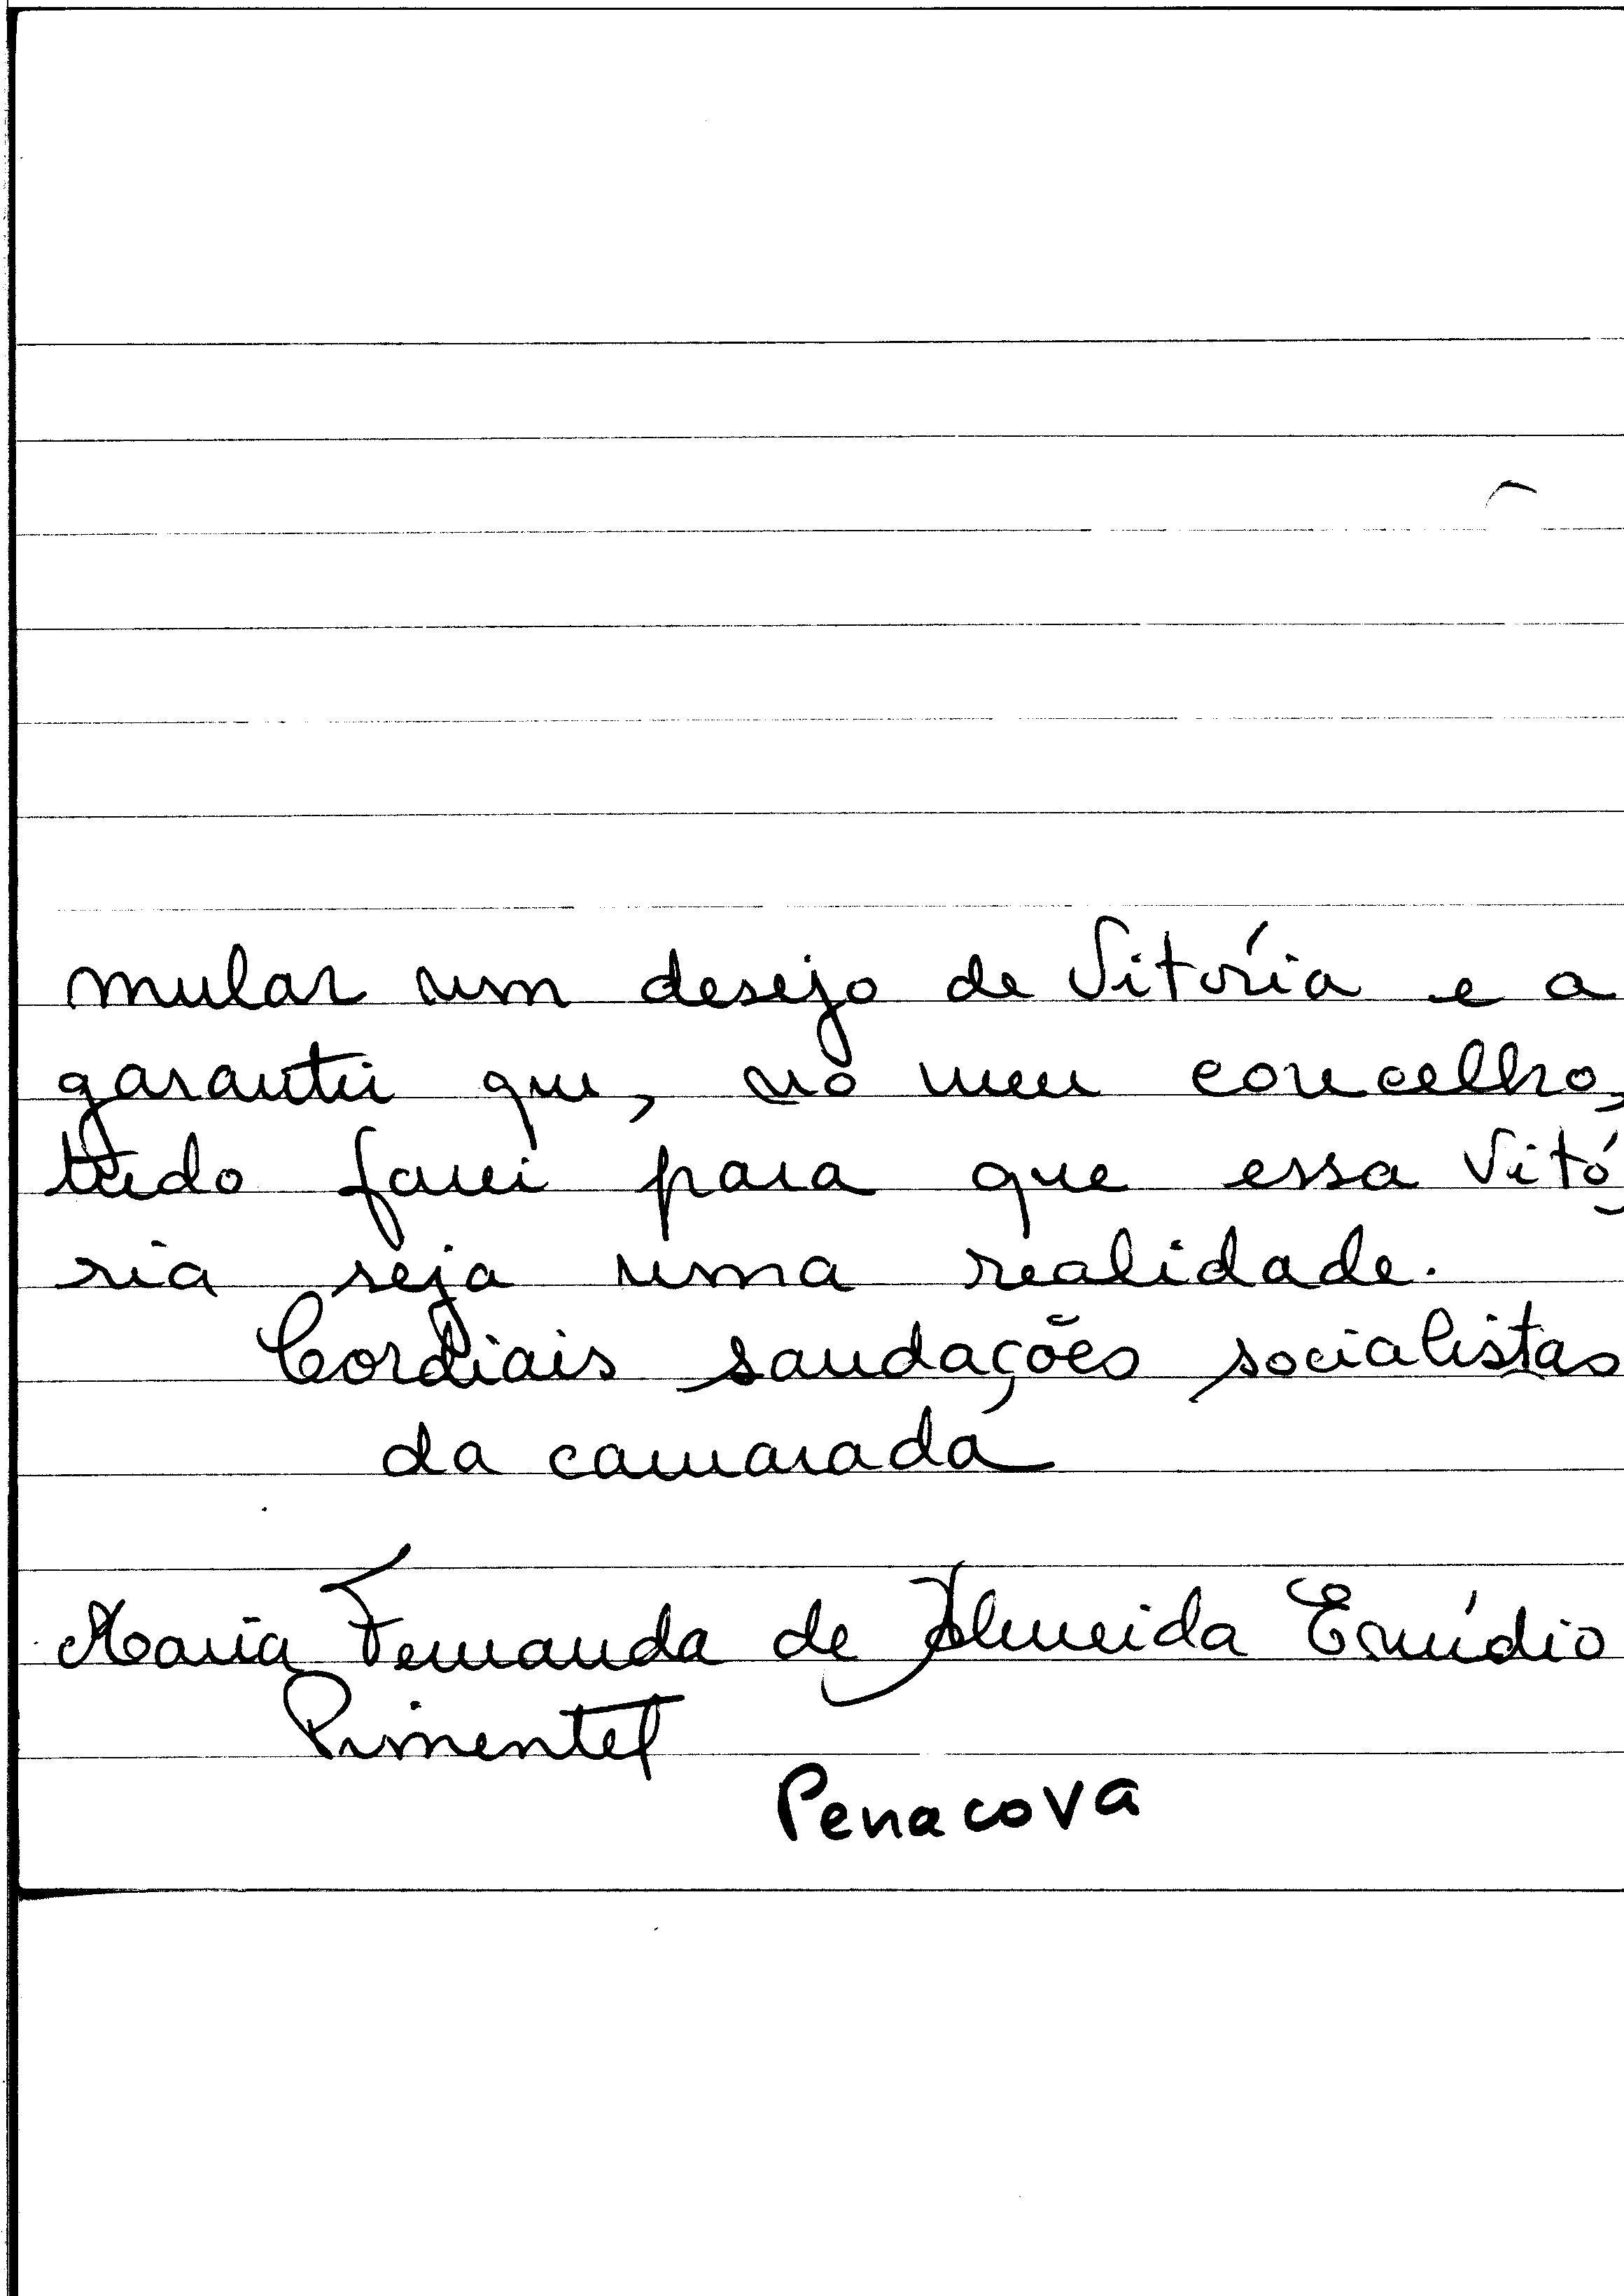 mular um desejo de Vitória e a
garantir que, no meu concelho,
tudo farei para que essa Vitó
ria seja uma realidade.
Cordiais saudações socialistas
da camarada
Maria Fernanda de Almeida Emídio
Pimentel
Penacova